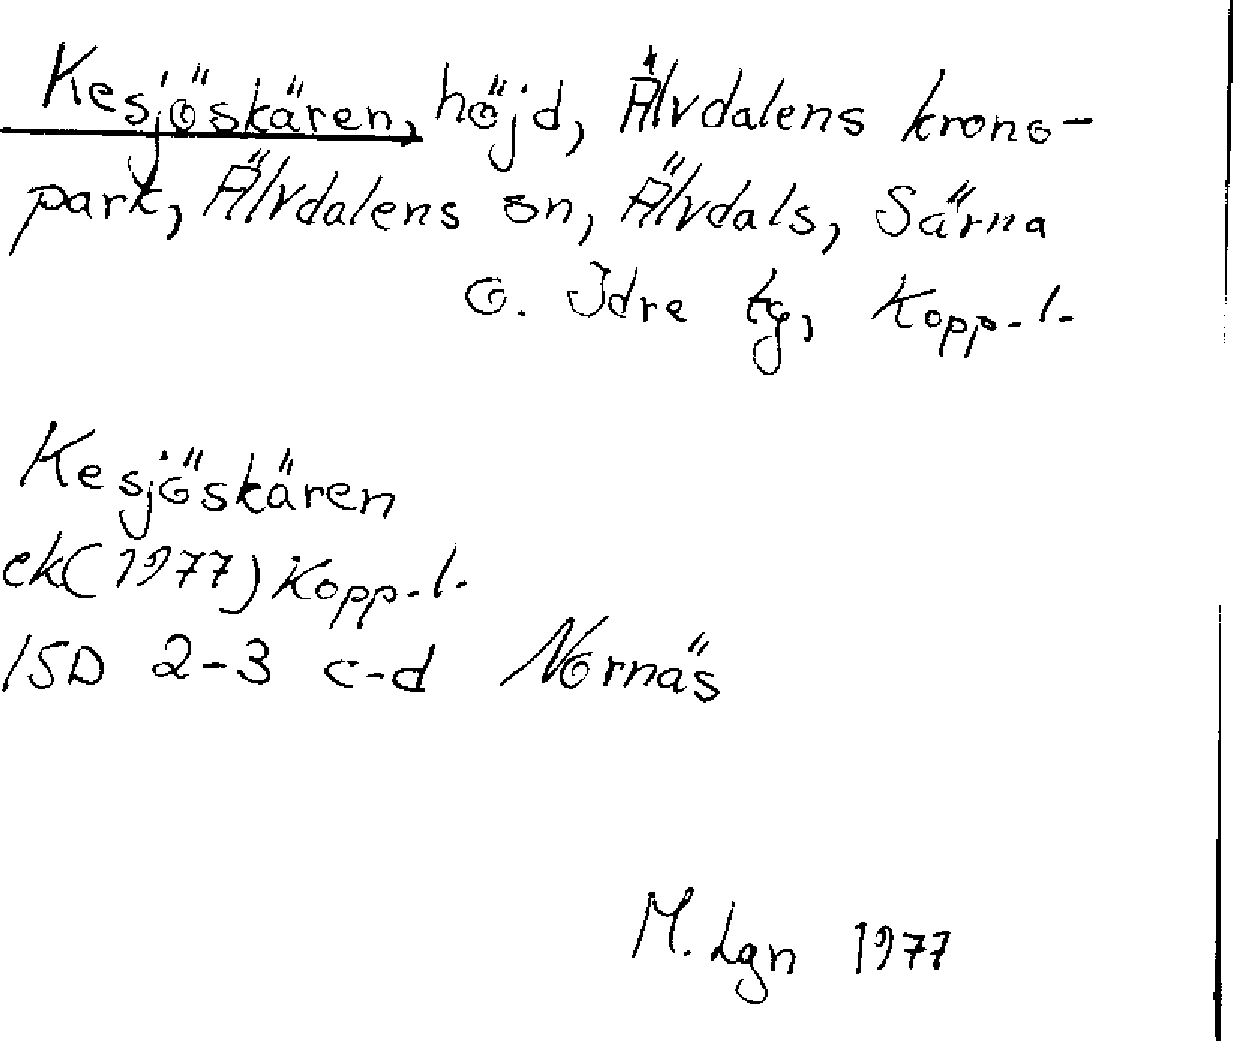 Kesjöskären, höjd, Älvdalens krono-
park, Älvdalens sn, Älvdals, Särna
o. Idre tg, Kopp-l.
Kesjöskären
ek(1977) Kopp-l.
15D 2-3 c-d Nornäs
M. Lgn 1977